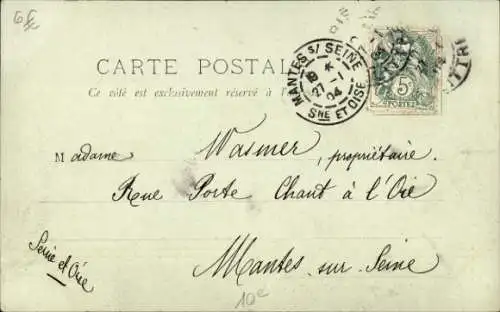 CARTE POSTALE
Ce côté est exclusivement réservé à l'
MANTES s/ SEINE
27 -1
04
SNE ET OISE
5c
POSTES
Madame Wasmer, propriétaire.
Rue Porte Chant à l'Oie
Mantes sur Seine
Seine et Oise
10e